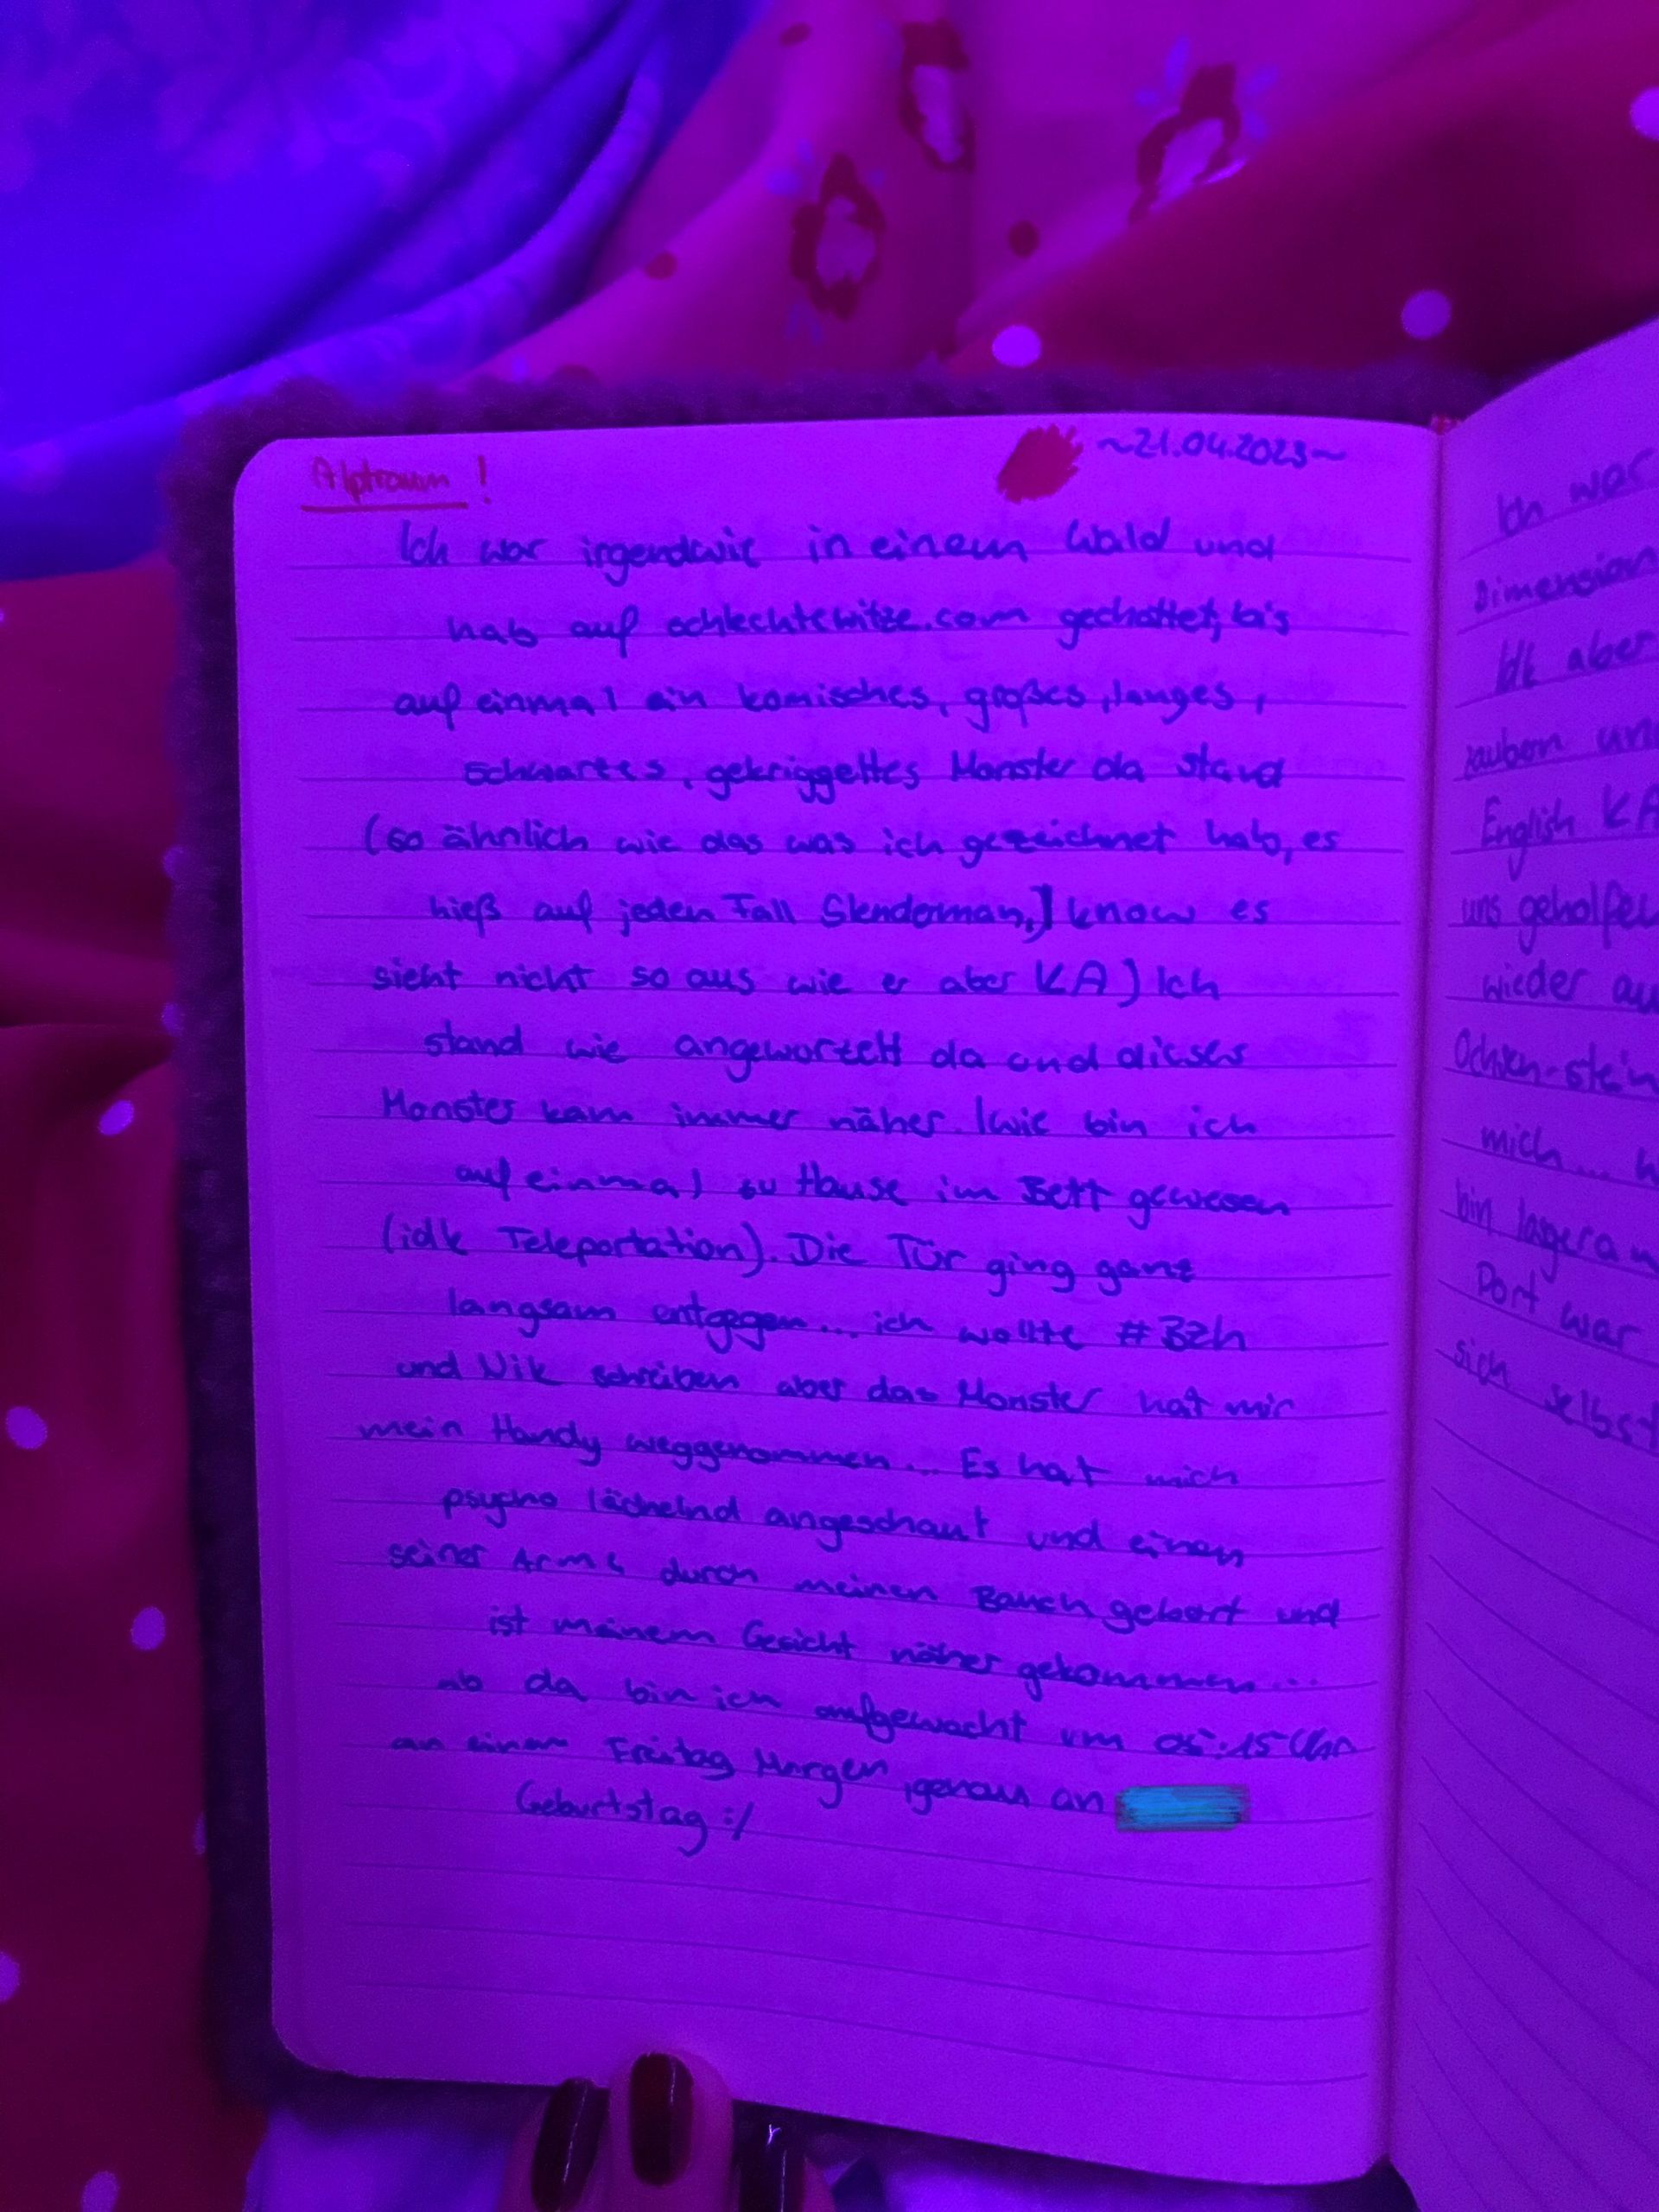 Alptraum!
~21.04.2023~
Ich war irgendwie in einem Wald und
hab auf schlechtewitze.com gechattet, bis
auf einmal ein komisches, großes, langes,
schwarzes, gekriggeltes Monster da stand
(so ähnlich wie das was ich gezeichnet hab, es
hieß auf jeden Fall Slenderman, I know es
sieht nicht so aus wie er aber KA) Ich
stand wie angewurzelt da und dieses
Monster kam immer näher. Iwie bin ich
auf einmal zu Hause im Bett gewesen
(idk Teleportation). Die Tür ging ganz
langsam entgegen... ich wollte #B2h
und Nik schreiben aber das Monster hat mir
mein Handy weggenommen... Es hat mich
psycho lächelnd angeschaut und einen
seiner Arme durch meinen Bauch gebort und
ist meinem Gesicht näher gekommen...
ab da bin ich aufgewacht um 05:15 Uhr
an einem Freitag Morgen, genau an
Geburtstag :/
Ich war
Dimension
Idk aber
zaubern un
English KA
uns geholfen
wieder au
Ochsen-stein
mich...
bin
Dort war
sich selbst